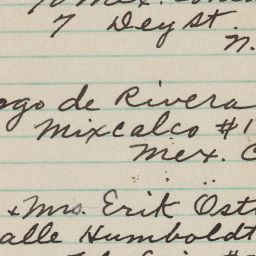 7 Dey St.
N.
ego de Rivera
Mixcalco #1
Mex. C
+ Mrs. Erik Ost
alle Humboldt